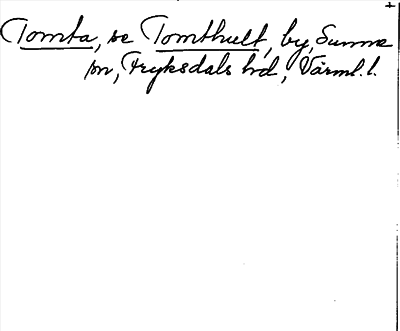 Tomta, se Tomthult, by, Sunne
sn, Fryksdals hrd, Värml. l.